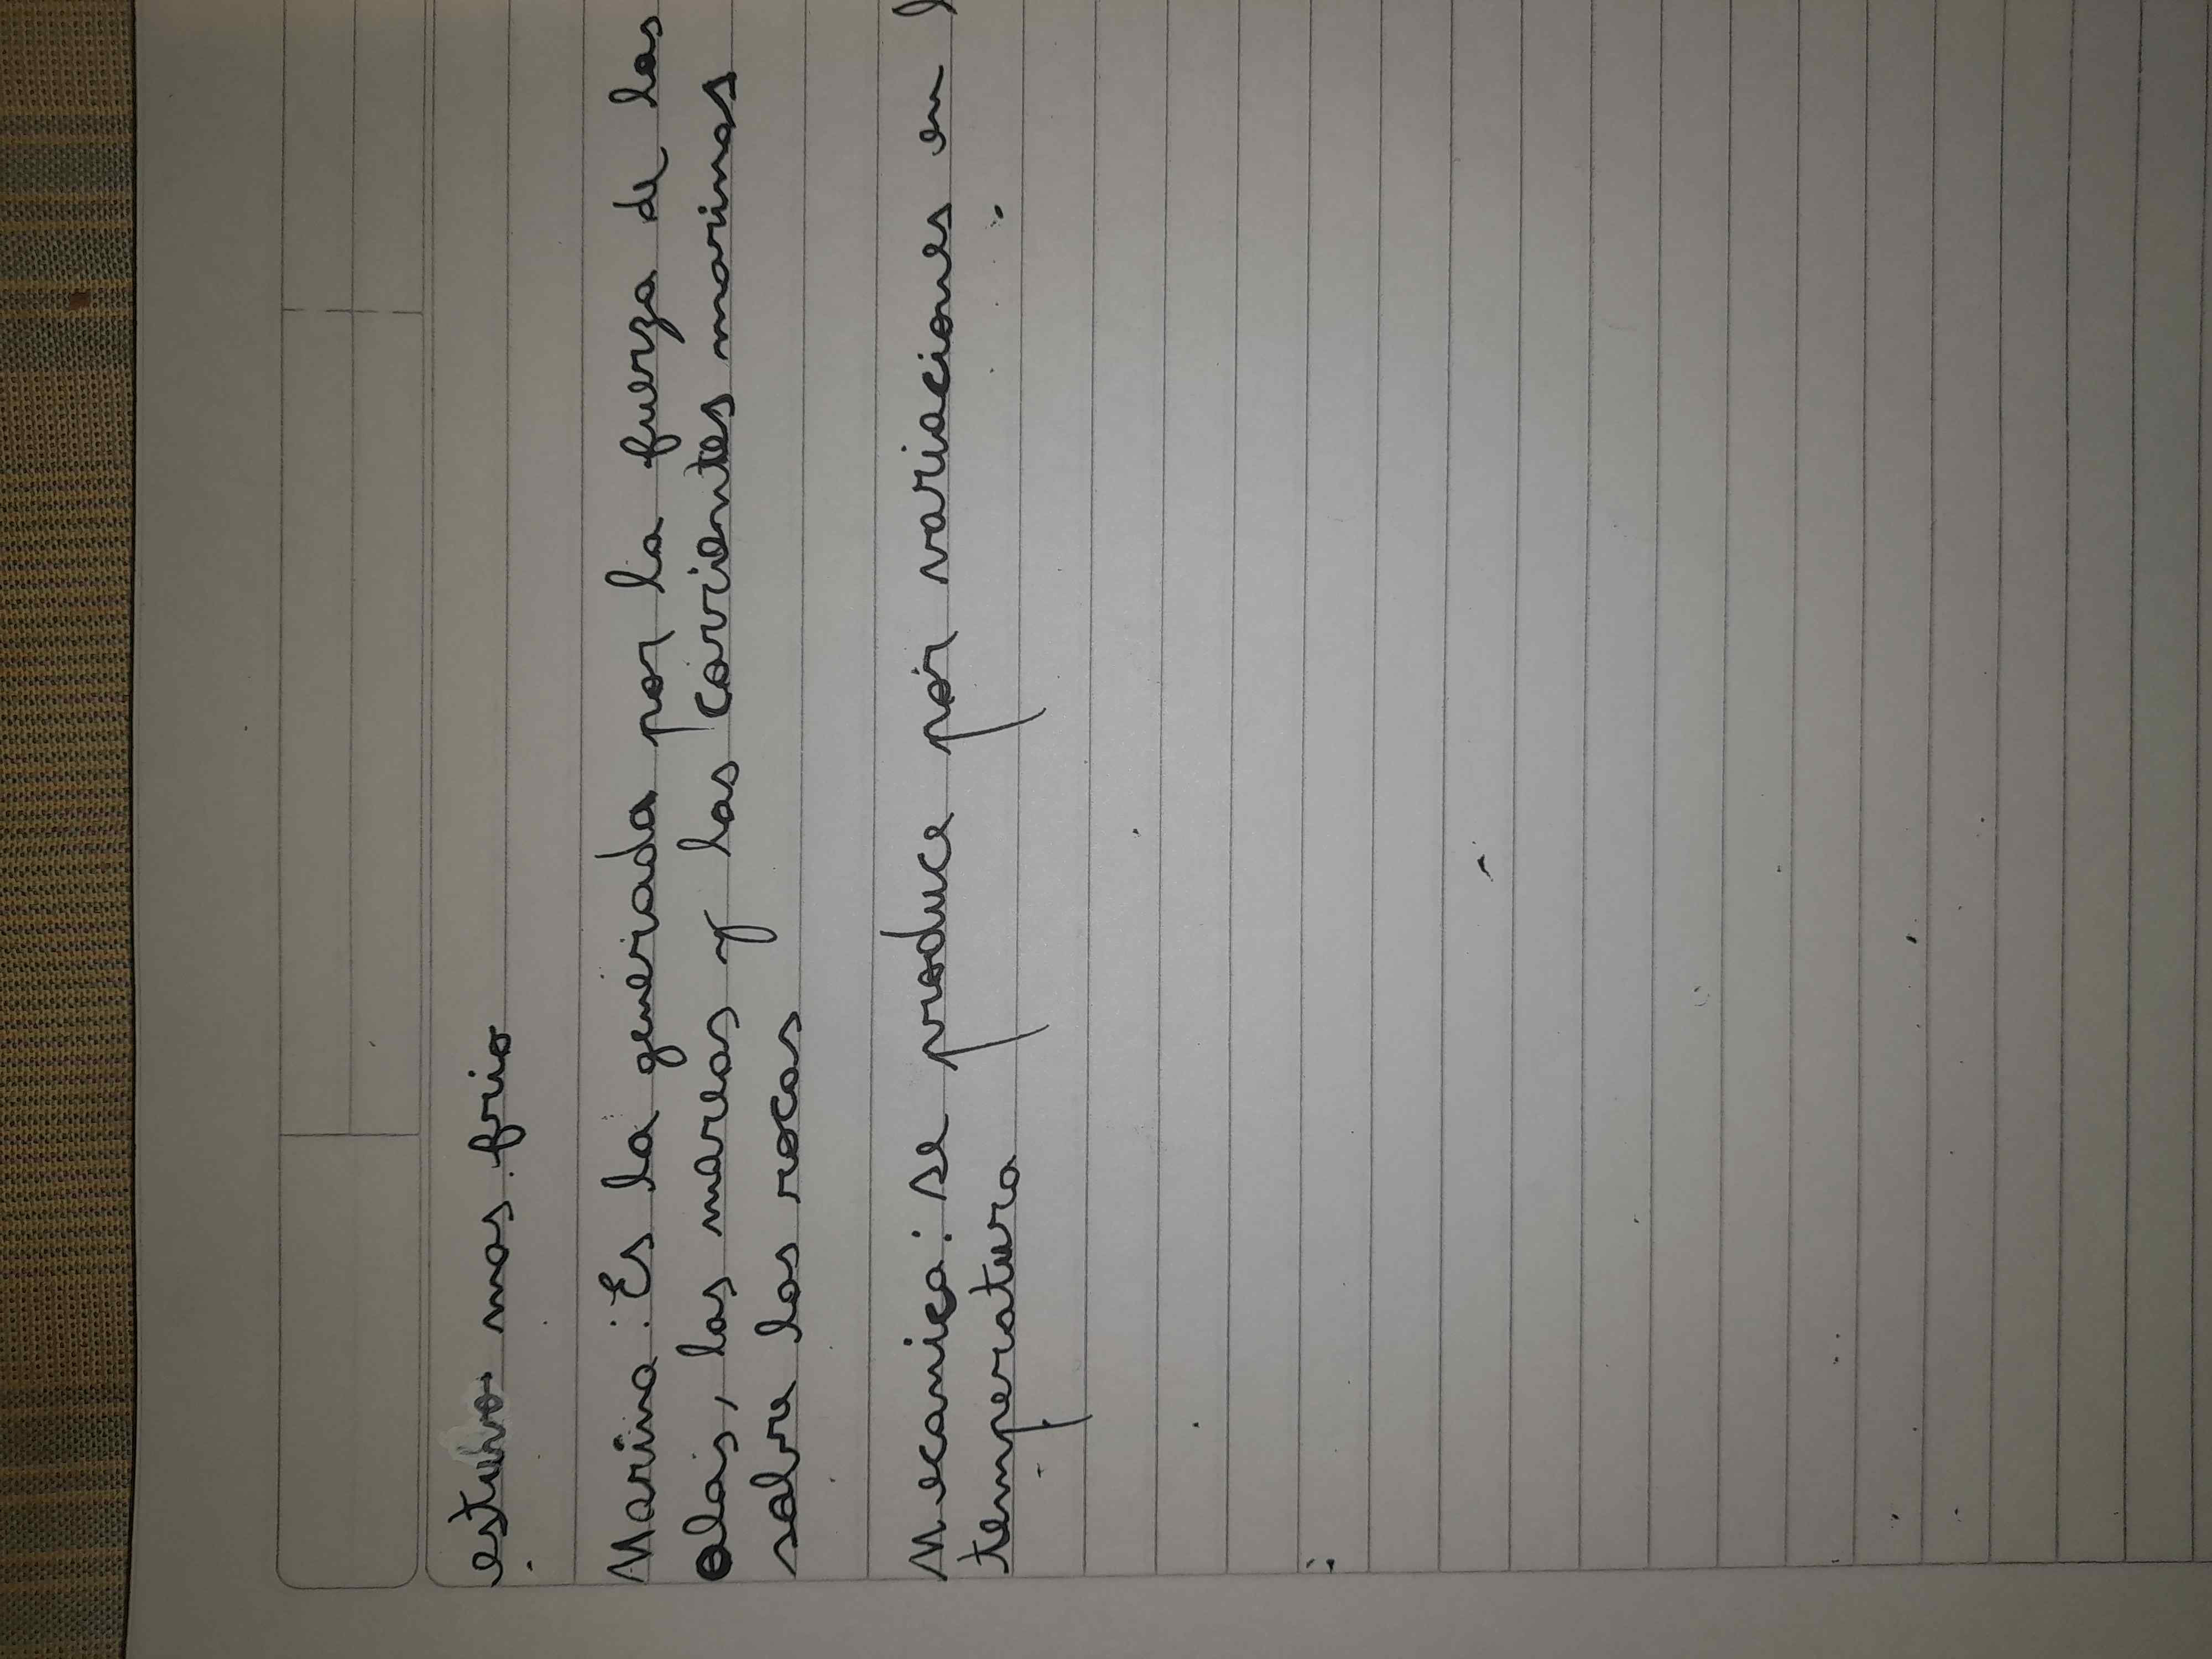 estuvo mas frio
Marina: Es la generada por la fuerza de las
olas, las mareas y las corrientes marinas
sobre las rocas
Mecanica: se produce por variaciones en
temperatura